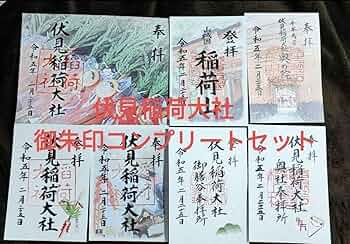 奉拝
伏見稲荷大社
令和五年二月二十五日
奉拝
稲荷大社
令和五年二月二十五日
奉拝
令和五年二月二十五日
伏見稲荷大社
御朱印コンプリートセット
奉拝
伏見稲荷大社
令和五年二月二十五日
奉拝
伏見稲荷大社
令和五年二月二十五日
奉拝
伏見稲荷大社
御膳谷奉拝所
令和五年二月二十五日
奉拝
伏見稲荷大社
奥社奉拝所
令和五年二月二十五日